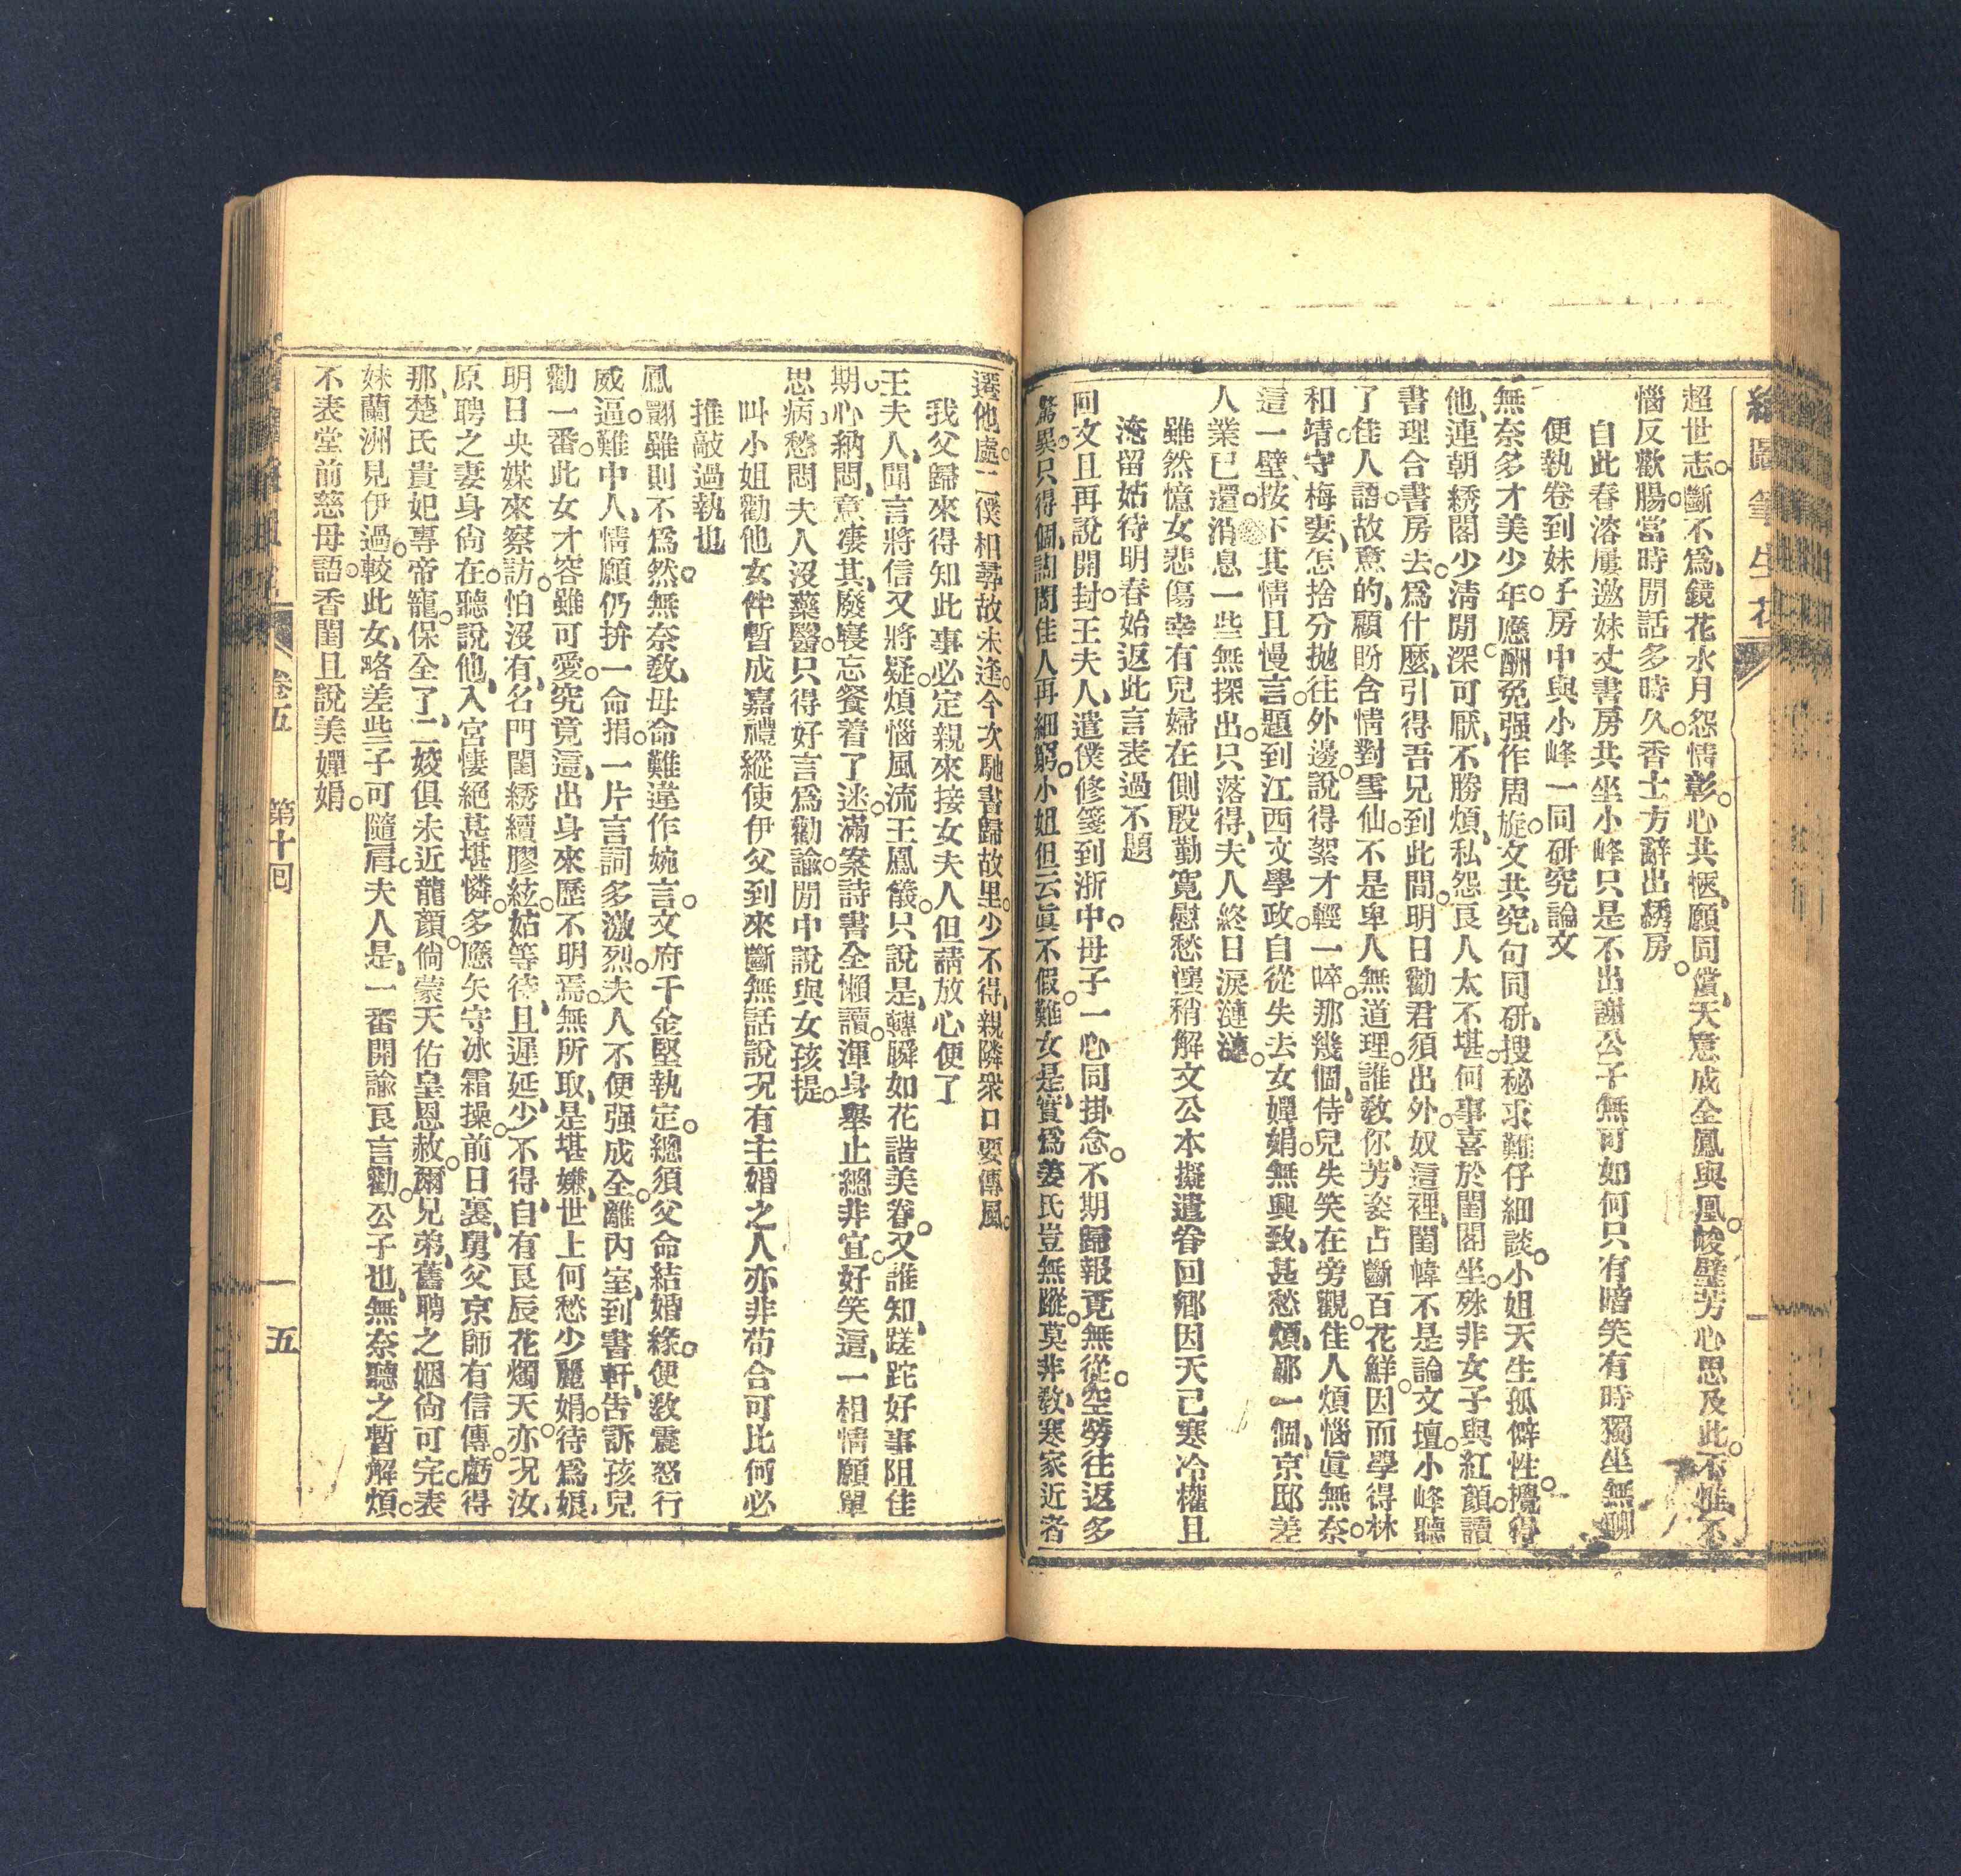 繪圖筆生花
超世志。斷不爲、鏡花水月怨情彰。心共極、願同償、天意成全鳳與凰。峻璧芳心思及此。不惟不
惱反歡腸。當時閒話多時久。香士方辭出綉房。
自此春溶屢邀妹丈書房共坐小峰只是不出謝公子無可如何只有暗笑有時獨坐無聊
便執卷到妹子房中與小峰一同研究論文
無奈多才美少年。應酬免强作周旋。文共究、句同研、搜秘求難仔細談。小姐天生孤僻性。攪得
他、連朝綉閣少清閒。深可厭、不勝煩、私怨良人太不堪。何事喜於閨閣坐。殊非女子與紅顏。讀
書理合書房去。爲什麼、引得吾兄到此間。明日勸君須出外。奴這裡、閨幃不是論文壇。小峰聽
了佳人語。故意的、顧盼含情對雪仙。不是卑人無道理。誰教你、芳姿占斷百花鮮。因而學得林
和靖。守梅妻、怎捨分拋往外邊。說得絮才輕一啐。那幾個、侍兒失笑在旁觀。佳人煩惱眞無奈。
這一壁、按下其情且慢言。題到江西文學政。自從失去女嬋娟。無興致、甚愁煩、那一個、京邸差
人業已還。消息一些無探出。只落得、夫人終日淚漣漣。
雖然憶女悲傷幸有兒婦在側殷勤寬慰愁懷稍解文公本擬遣眷回鄉因天已寒冷權且
淹留姑待明春始返此言表過不題
回文且再說開封。王夫人、遣僕修箋到浙中。母子一心同掛念。不期歸報竟無從。空勞往返多
驚異。只得個、詢問佳人再細窮。小姐但云眞不假。難女是、實爲姜氏豈無蹤。莫非教、寒家近者
遷他處。二僕相尋故未逢。今次馳書歸故里。少不得、親隣衆口要傳風。
我父歸來得知此事必定親來接女夫人但請放心便了
王夫人、聞言將信又將疑。煩惱風流王鳳儀。只說是、轉瞬如花諧美眷。又誰知、蹉跎好事阻佳
期。心納悶、意凄其、廢寢忘餐着了迷。滿案詩書全懶讀。渾身舉止總非宜。好笑這、一相情願單
思病。愁悶夫人沒藥醫。只得好言爲勸諭。閒中說與女孩提。
叫小姐勸他女伴暫成嘉禮縱使伊父到來斷無話說况有主婚之人亦非苟合可比何必
推敲過執也
鳳翾雖則不爲然。無奈教、母命難違作婉言。文府千金堅執定。總須父命結婚緣。便教震怒行
威逼。難中人、情願仍拚一命捐。一片言詞多激烈。夫人不便强成全。離內室、到書軒、告訴孩兒
勸一番。此女才容雖可愛。究竟這、出身來歷不明焉。無所取、是堪嫌、世上何愁少麗娟。待爲娘、
明日央媒來察訪。怕沒有、名門閨綉續膠絃。姑等待、且遲延、少不得、自有良辰花燭天。亦况汝、
原聘之妻身尙在。聽說他、入宮悽絕甚堪憐。多應矢守冰霜操。前日裏、舅父京師有信傳。虧得
那、楚氏貴妃專帝寵。保全了、二姣俱未近龍顏。倘蒙天佑皇恩赦。爾兄弟、舊聘之姻尙可完。表
妹蘭洲見伊過。較此女、略差些子可隨肩。夫人是、一番開諭良言勸。公子也、無奈聽之暫解煩。
不表堂前慈母語。香閨且說美嬋娟。
卷五　第十回
五